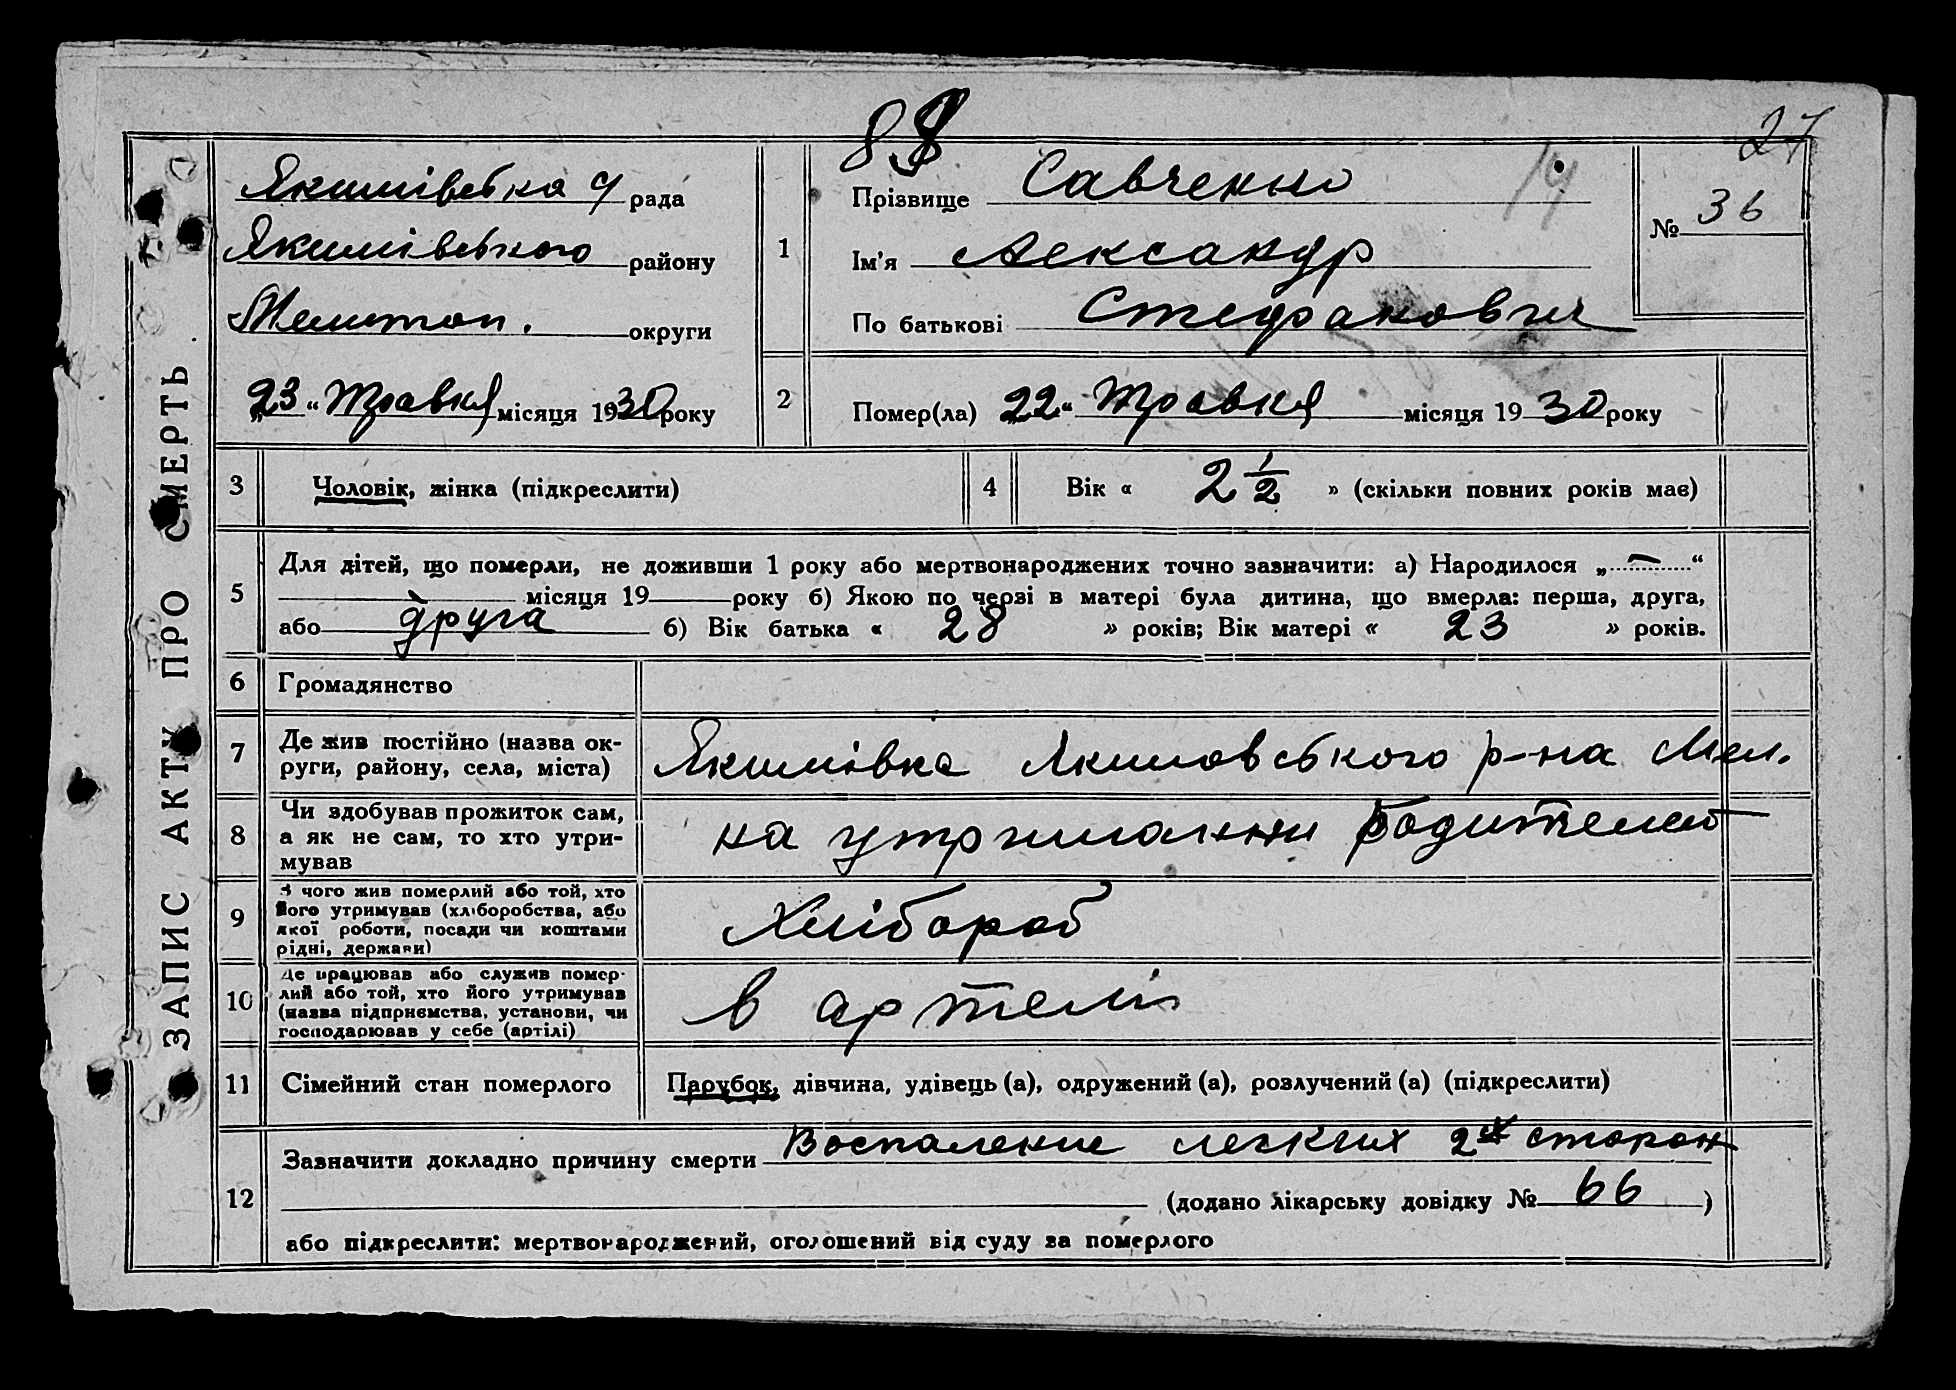 88
27
ЗАПИС АКТУ ПРО СМЕРТЬ
Якимівська рада
Якимівського району
Мелитоп. округи
„23“ Травня місяця 1930 року
1
Прізвище Савченко
Ім'я Александр
По батькові Стефанович
14
№ 36
2
Помер(ла) „22“ Травня місяця 1930 року
3 Чоловік, жінка (підкреслити)
4 Вік « 2 1/2 » (скільки повних років має)
5
Для дітей, що померли, не доживши 1 року або мертвонароджених точно зазначити: а) Народилося „ — “
місяця 19 року б) Якою по черзі в матері була дитина, що вмерла: перша, друга,
або друга б) Вік батька « 28 » років; Вік матері « 23 » років.
6 Громадянство
7 Де жив постійно (назва ок-
руги, району, села, міста)
Якимівка Якимовського р-на Мел.
8 Чи здобував прожиток сам,
а як не сам, то хто утри-
мував
на утриманни родителей
9 З чого жив померлий або той, хто
його утримував (хліборобства, або
якої роботи, посади чи коштами
рідні, держави)
Хлібороб
10 Де працював або служив помер-
лий або той, хто його утримував
(назва підприємства, установи, чи
господарював у себе (артілі)
в артелі
11 Сімейний стан померлого
Парубок, дівчина, удівець (а), одружений (а), розлучений (а) (підкреслити)
12
Зазначити докладно причину смерти Воспаление легких 2х сторон
(додано лікарську довідку № 66 )
або підкреслити: мертвонароджений, оголошений від суду за померлого